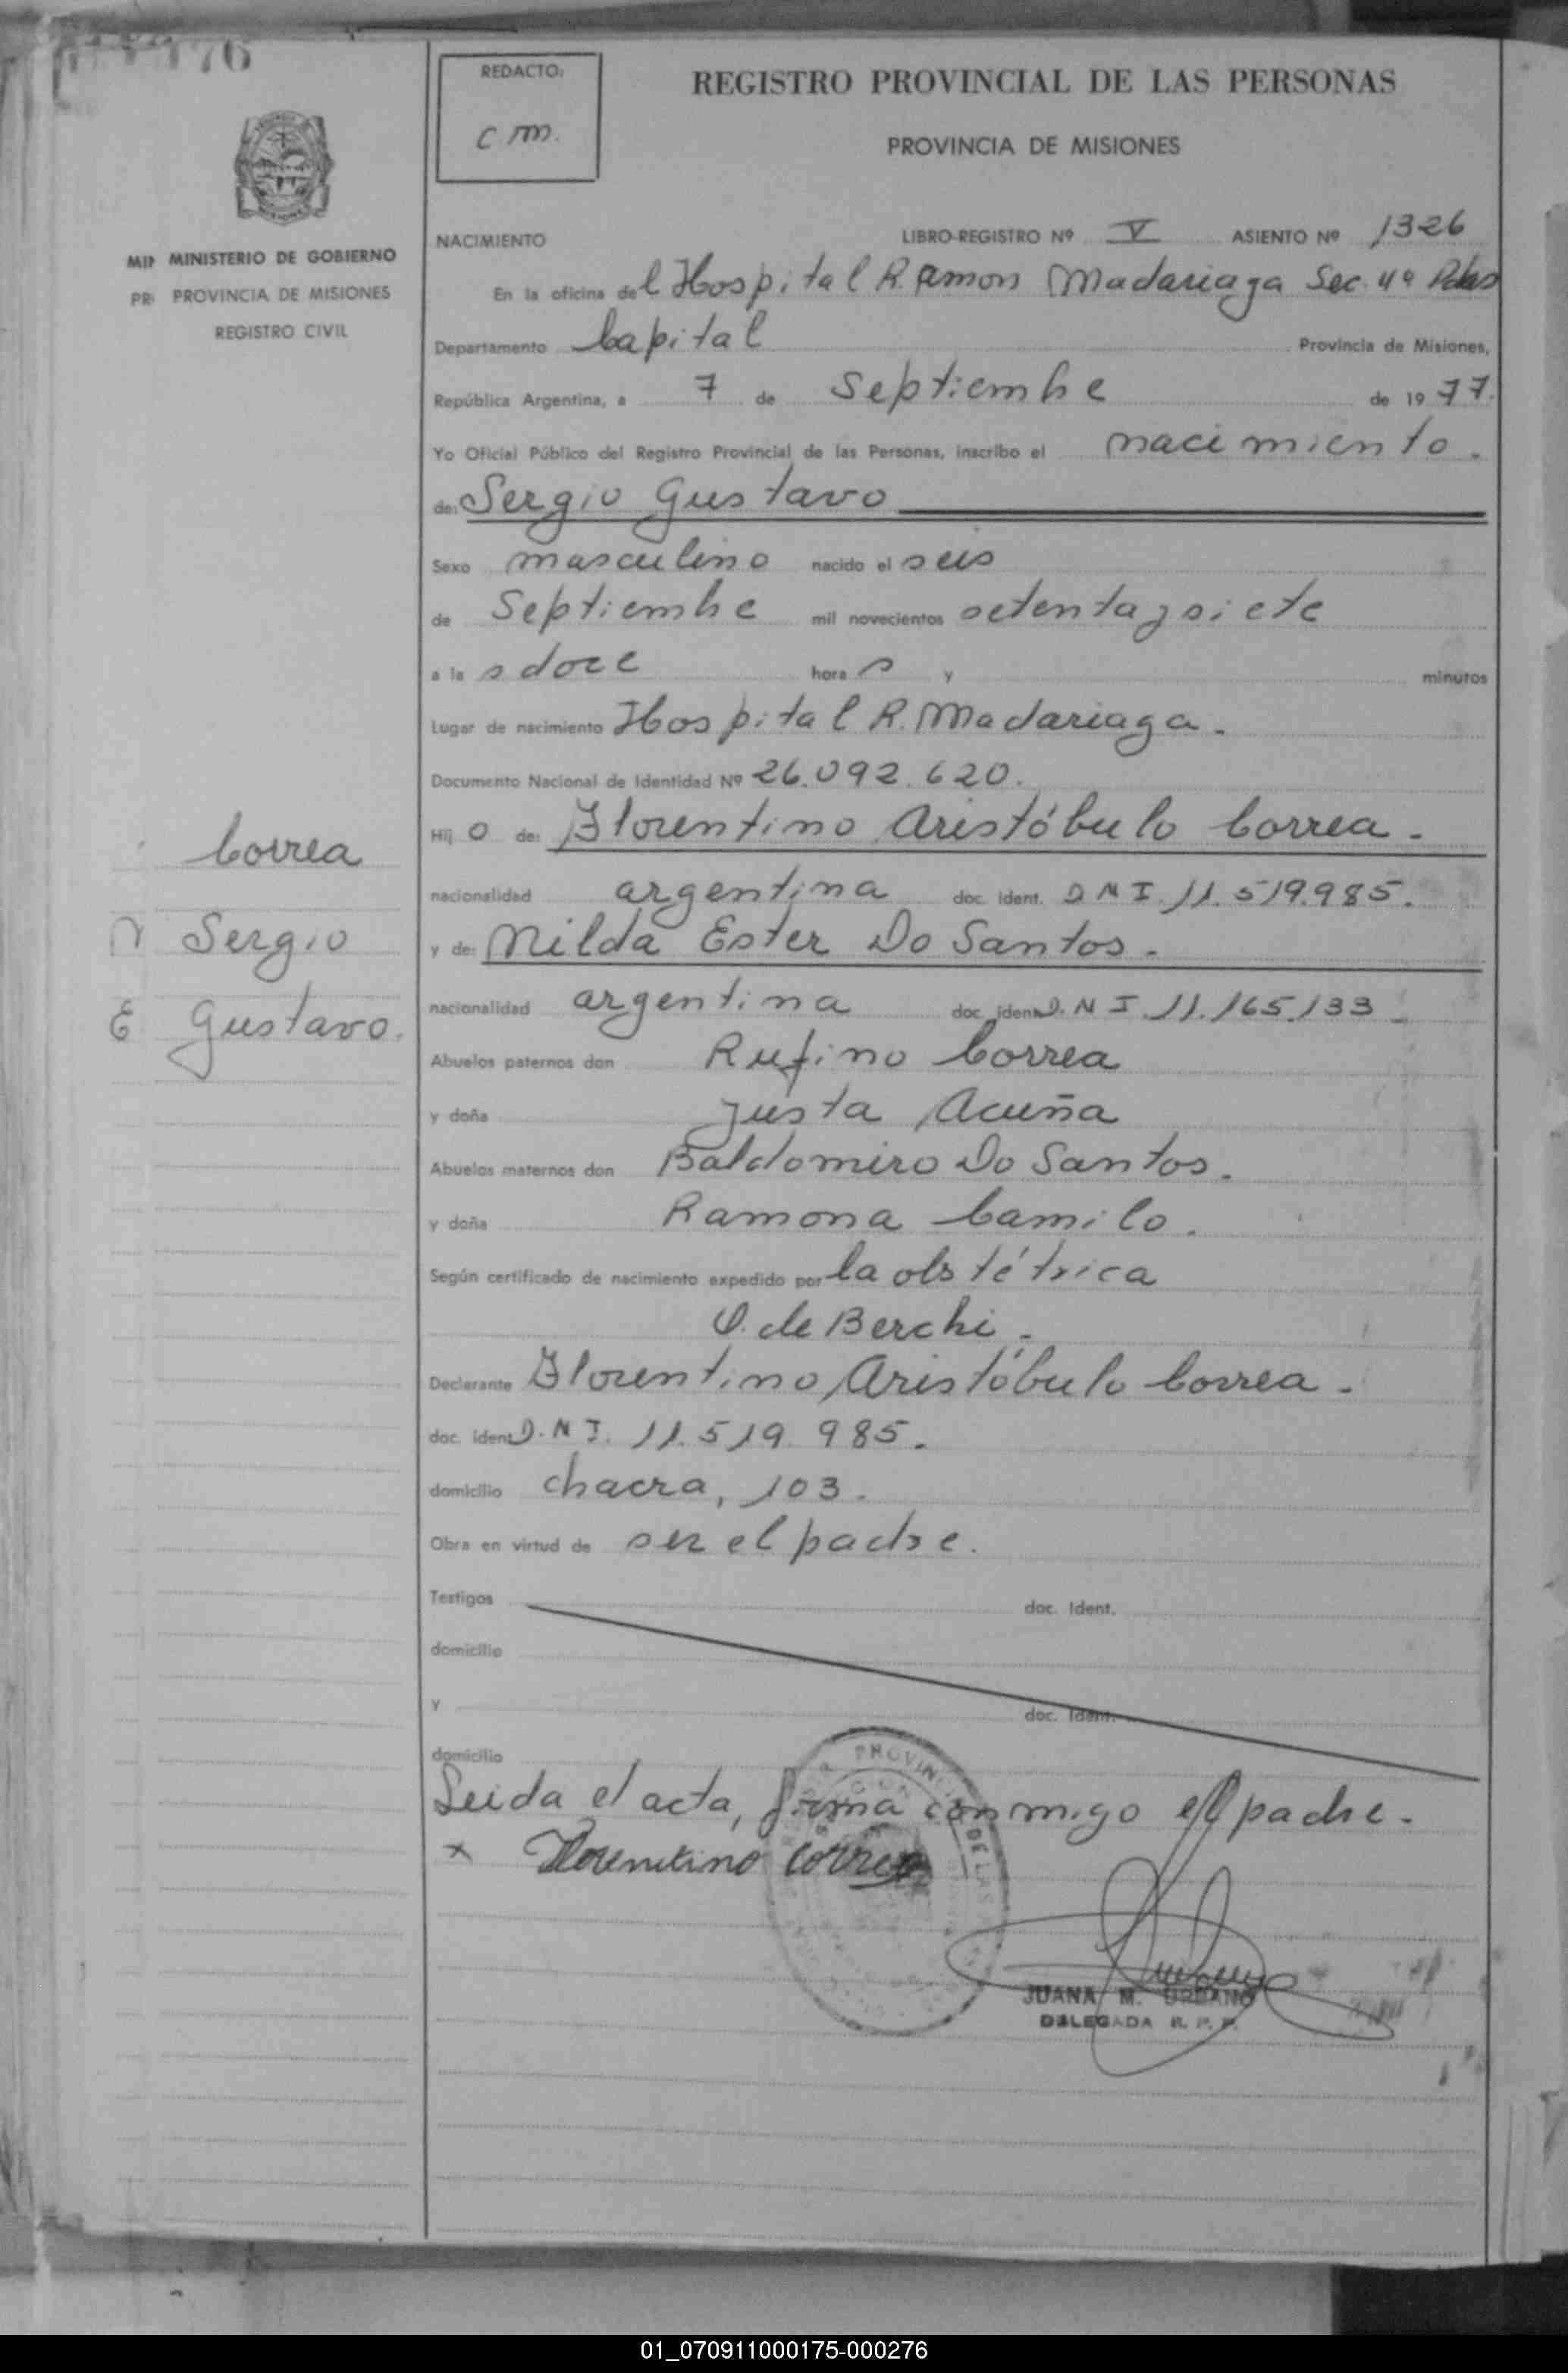 REDACTO:
C.M.
REGISTRO PROVINCIAL DE LAS PERSONAS
PROVINCIA DE MISIONES
MINISTERIO DE GOBIERNO
PROVINCIA DE MISIONES
REGISTRO CIVIL
NACIMIENTO LIBRO-REGISTRO Nº V ASIENTO Nº 1326
En la oficina del Hospital R. Ramon Madariaga Sec. 4ª Pdas
Departamento Capital Provincia de Misiones,
República Argentina, a 7 de Septiembre de 1977.
Yo Oficial Público del Registro Provincial de las Personas, inscribo el nacimiento.
de: Sergio Gustavo
Sexo masculino nacido el seis
de Septiembre mil novecientos setenta y siete
a las doce horas y minutos
Lugar de nacimiento Hospital R. Madariaga.
Documento Nacional de Identidad Nº 26.092.620.
Hijo de: Florentino Aristóbulo Correa.
nacionalidad argentina doc. ident. D N I. 11.519.985.
y de: Nilda Ester Do Santos.
nacionalidad argentina doc. ident. D. N I. 11.165.133
Abuelos paternos don Rufino Correa
y doña Justa Acuña
Abuelos maternos don Baldomiro Do Santos.
y doña Ramona Camilo.
Según certificado de nacimiento expedido por la obstétrica
O. de Berchi.
Declarante Florentino Aristóbulo Correa.
doc. ident D. N I. 11.519.985.
domicilio chacra, 103.
Obra en virtud de ser el padre.
Testigos doc. Ident.
domicilio
y doc. Ident.
domicilio
Leida el acta, firma conmigo el padre.
x Florentino Correa
JUANA M. URBANO
DELEGADA R. P. P.
Correa
Sergio
Gustavo.
01_070911000175-000276